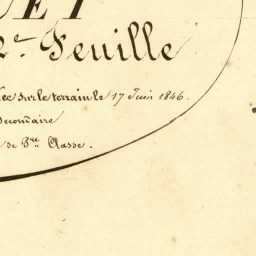 UET
2e. Feuille
sur le terrain le 17 Juin 1846.
Secondaire
de 3me Classe.